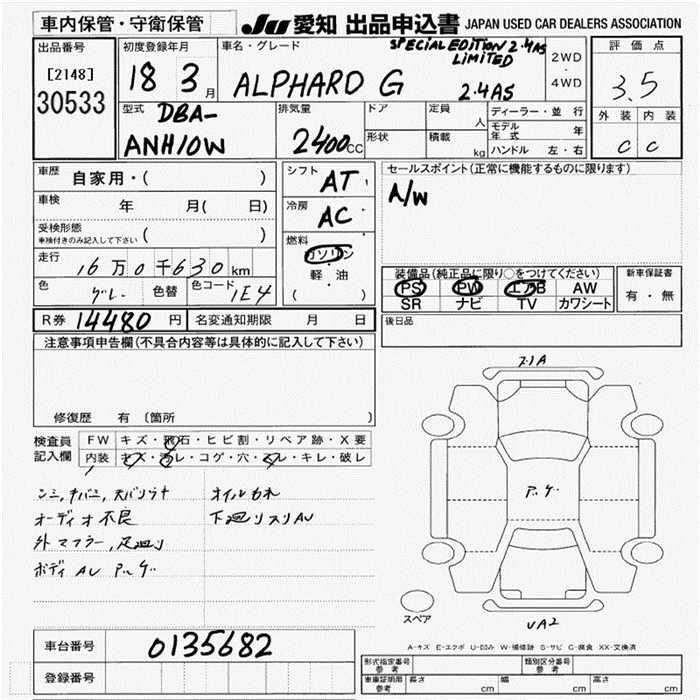 車内保管・守衛保管 JU 愛知 出品申込書 JAPAN USED CAR DEALERS ASSOCIATION
出品番号
[2148]
30533
初度登録年月
18 3月
車名・グレード
SPECIAL EDITION 2.4AS
LIMITED
ALPHARD G 2.4AS
2WD
・
4WD
評価点
3.5
外装 内装
C C
型式 DBA-
ANH10W
排気量
2400cc
ドア
形状
定員 人
積載 kg
ディーラー・並行
モデル年式 年
ハンドル 左・右
車歴 自家用・( )
車検 年 月( 日)
受検形態
車検付きのみ記入して下さい ( )
走行 16万0千630km
色 グレー 色替 色コード 1E4
シフト AT
冷房 AC
燃料
ガソリン
軽・油
( )
セールスポイント(正常に機能するものに限ります)
A/W
装備品(純正品に限り○をつけてください)
PS PW エアB AW
SR ナビ TV カワシート
新車保証書
有・無
R券 14480円 名変通知期限 月 日
後日品
注意事項申告欄(不具合内容等は具体的に記入して下さい)
修復歴 有 〔箇所
検査員
記入欄
FW キズ・飛石・ヒビ割・リペア跡・X要
内装 キズ・汚レ・コゲ・穴・スレ・キレ・破レ
オイルカレ
オーディオ不良
下廻りスリAU
外マフラー,足廻り
ボディ AU
スペア
UA2
A-キズ E-エクボ U-凹み W-補修跡 S-サビ C-腐食 XX-交換済
車台番号 0135682
登録番号
形式指定番号
参考
類別区分番号
参考
車庫証明用
参考
長さ cm 幅 cm 高さ cm